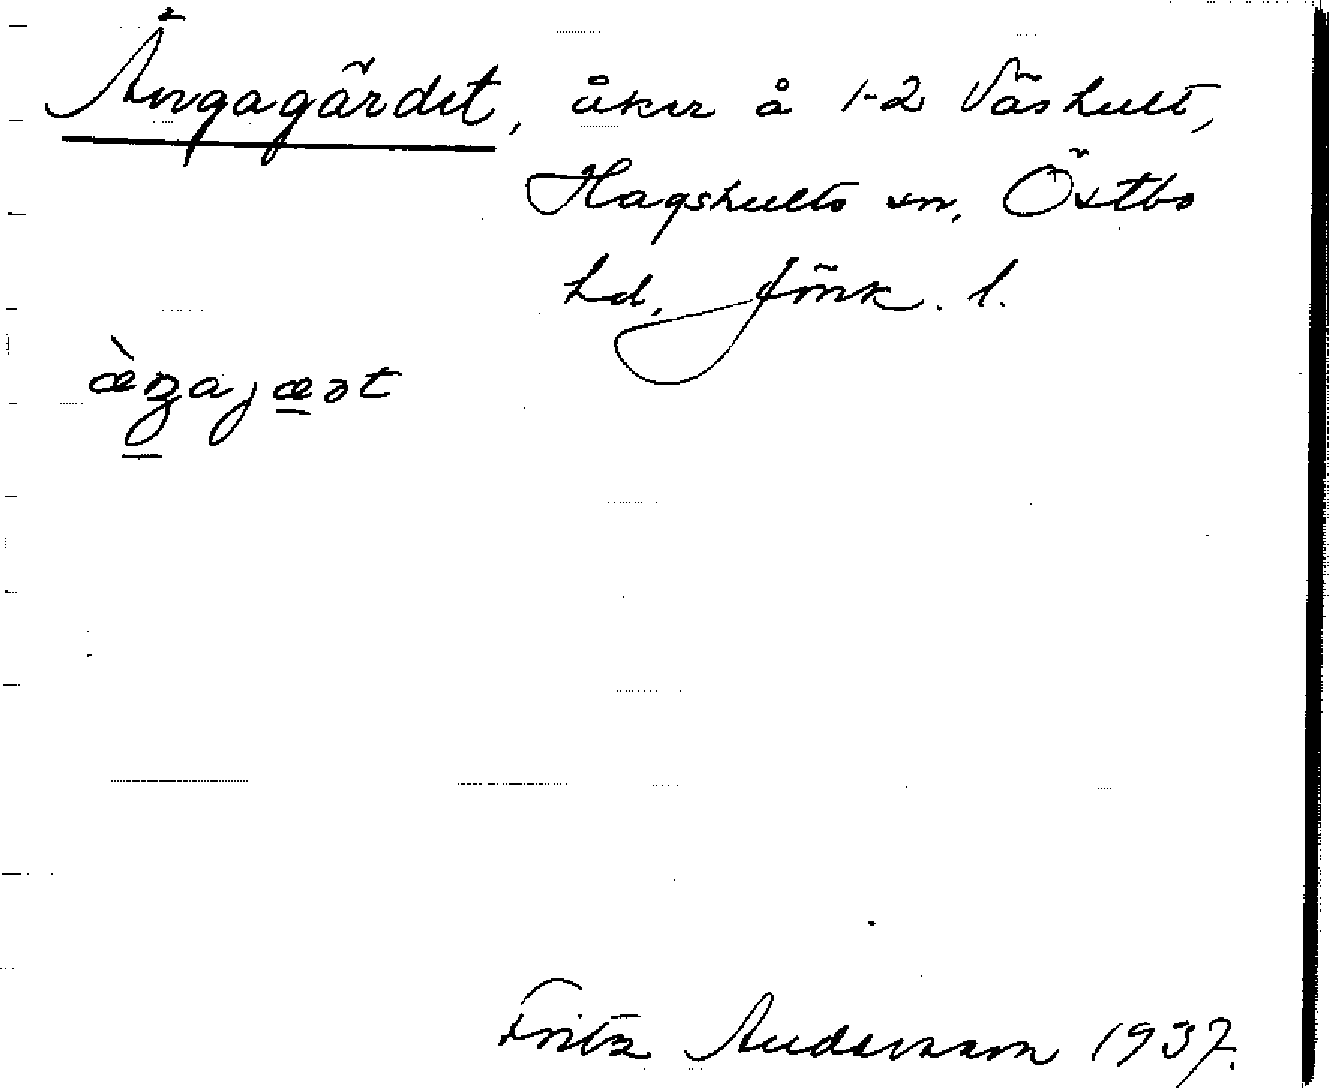 Ängagärdet, åker å 1-2 Väshult,
Hagshults sn, Östbo
hd, Jönk. l.
æ̀ŋajæət
Fritz Andersson 1937.